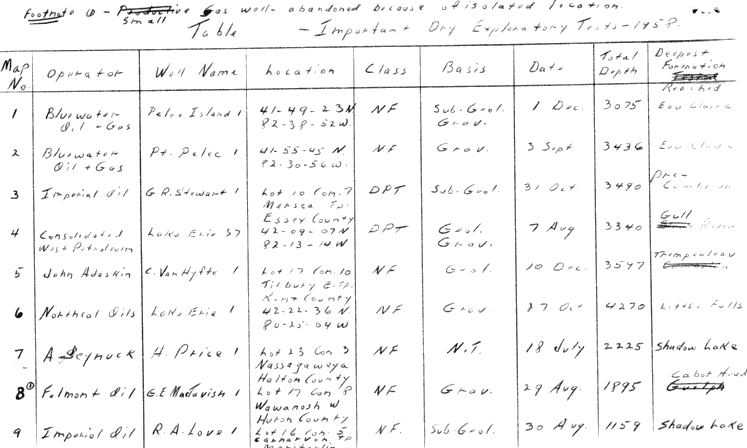 Footnote ① - Productive Gas well - abandoned because of isolated location.
Small
Table - Important Dry Exploratory Tests - 1958.
Map No. Operator Well Name Location Class Basis Date Total Depth Deepest Formation Tested Reached
1 Bluewater Oil + Gas Pelee Island 1 41-49-23N 82-38-52W NF Sub-Geol. Grav. 1 Dec. 3075 Eau Claire
2 Bluewater Oil + Gas Pt. Pelee 1 41-55-45 N 82-30-56W. NF Grav. 3 Sept 3436 Eau Claire
3 Imperial Oil G.R. Stewart 1 Lot 10 Con. 7 Mersea Tp. Essex County DPT Sub-Geol. 31 Oct. 3490 Pre-Cambrian
4 Consolidated West Petroleum Lake Erie 37 42-09-07N 82-13-14W DPT Geol. Grav. 7 Aug 3340 Gull River
5 John Adaskin C. Van Hyfte 1 Lot 17 Con. 10 Tilbury E. Tp. Kent County NF Geol. 10 Dec. 3597 Trempealeau
6 Northcal Oils Lake Erie 1 42-22-36 N 80-25-04 W NF Grav. 27 Oct 4270 Little Falls
7 A Seynuck H. Price 1 Lot 23 Con 3 Nassagaweya Halton County NF N.T. 18 July 2225 Shadow Lake
8① Felmont Oil G.E. MacTavish 1 Lot 17 Con 8 Wawanosh W Huron County NF Grav. 29 Aug 1895 Cabot Head Guelph
9 Imperial Oil R.A. Love 1 Lot 16 Con. 5 Carnarvon Tp NF. Sub Geol. 30 Aug. 1159 Shadow Lake